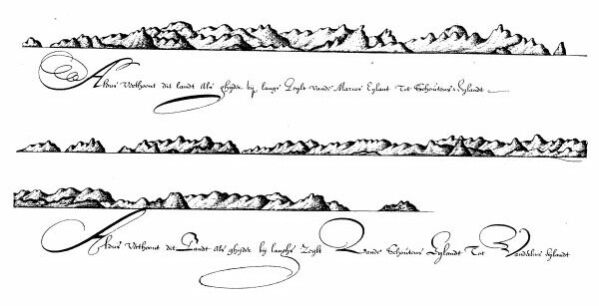 Aldus Verthoont dit landt Als ghyder by langs Zeylt vande Marien Eylant Tot Schoutens Eylandt
Aldus Verthoont dit Landt Als ghyder by langhs Zeylt Vande Schoutens Eylandt Tot Vanderlins Eylandt